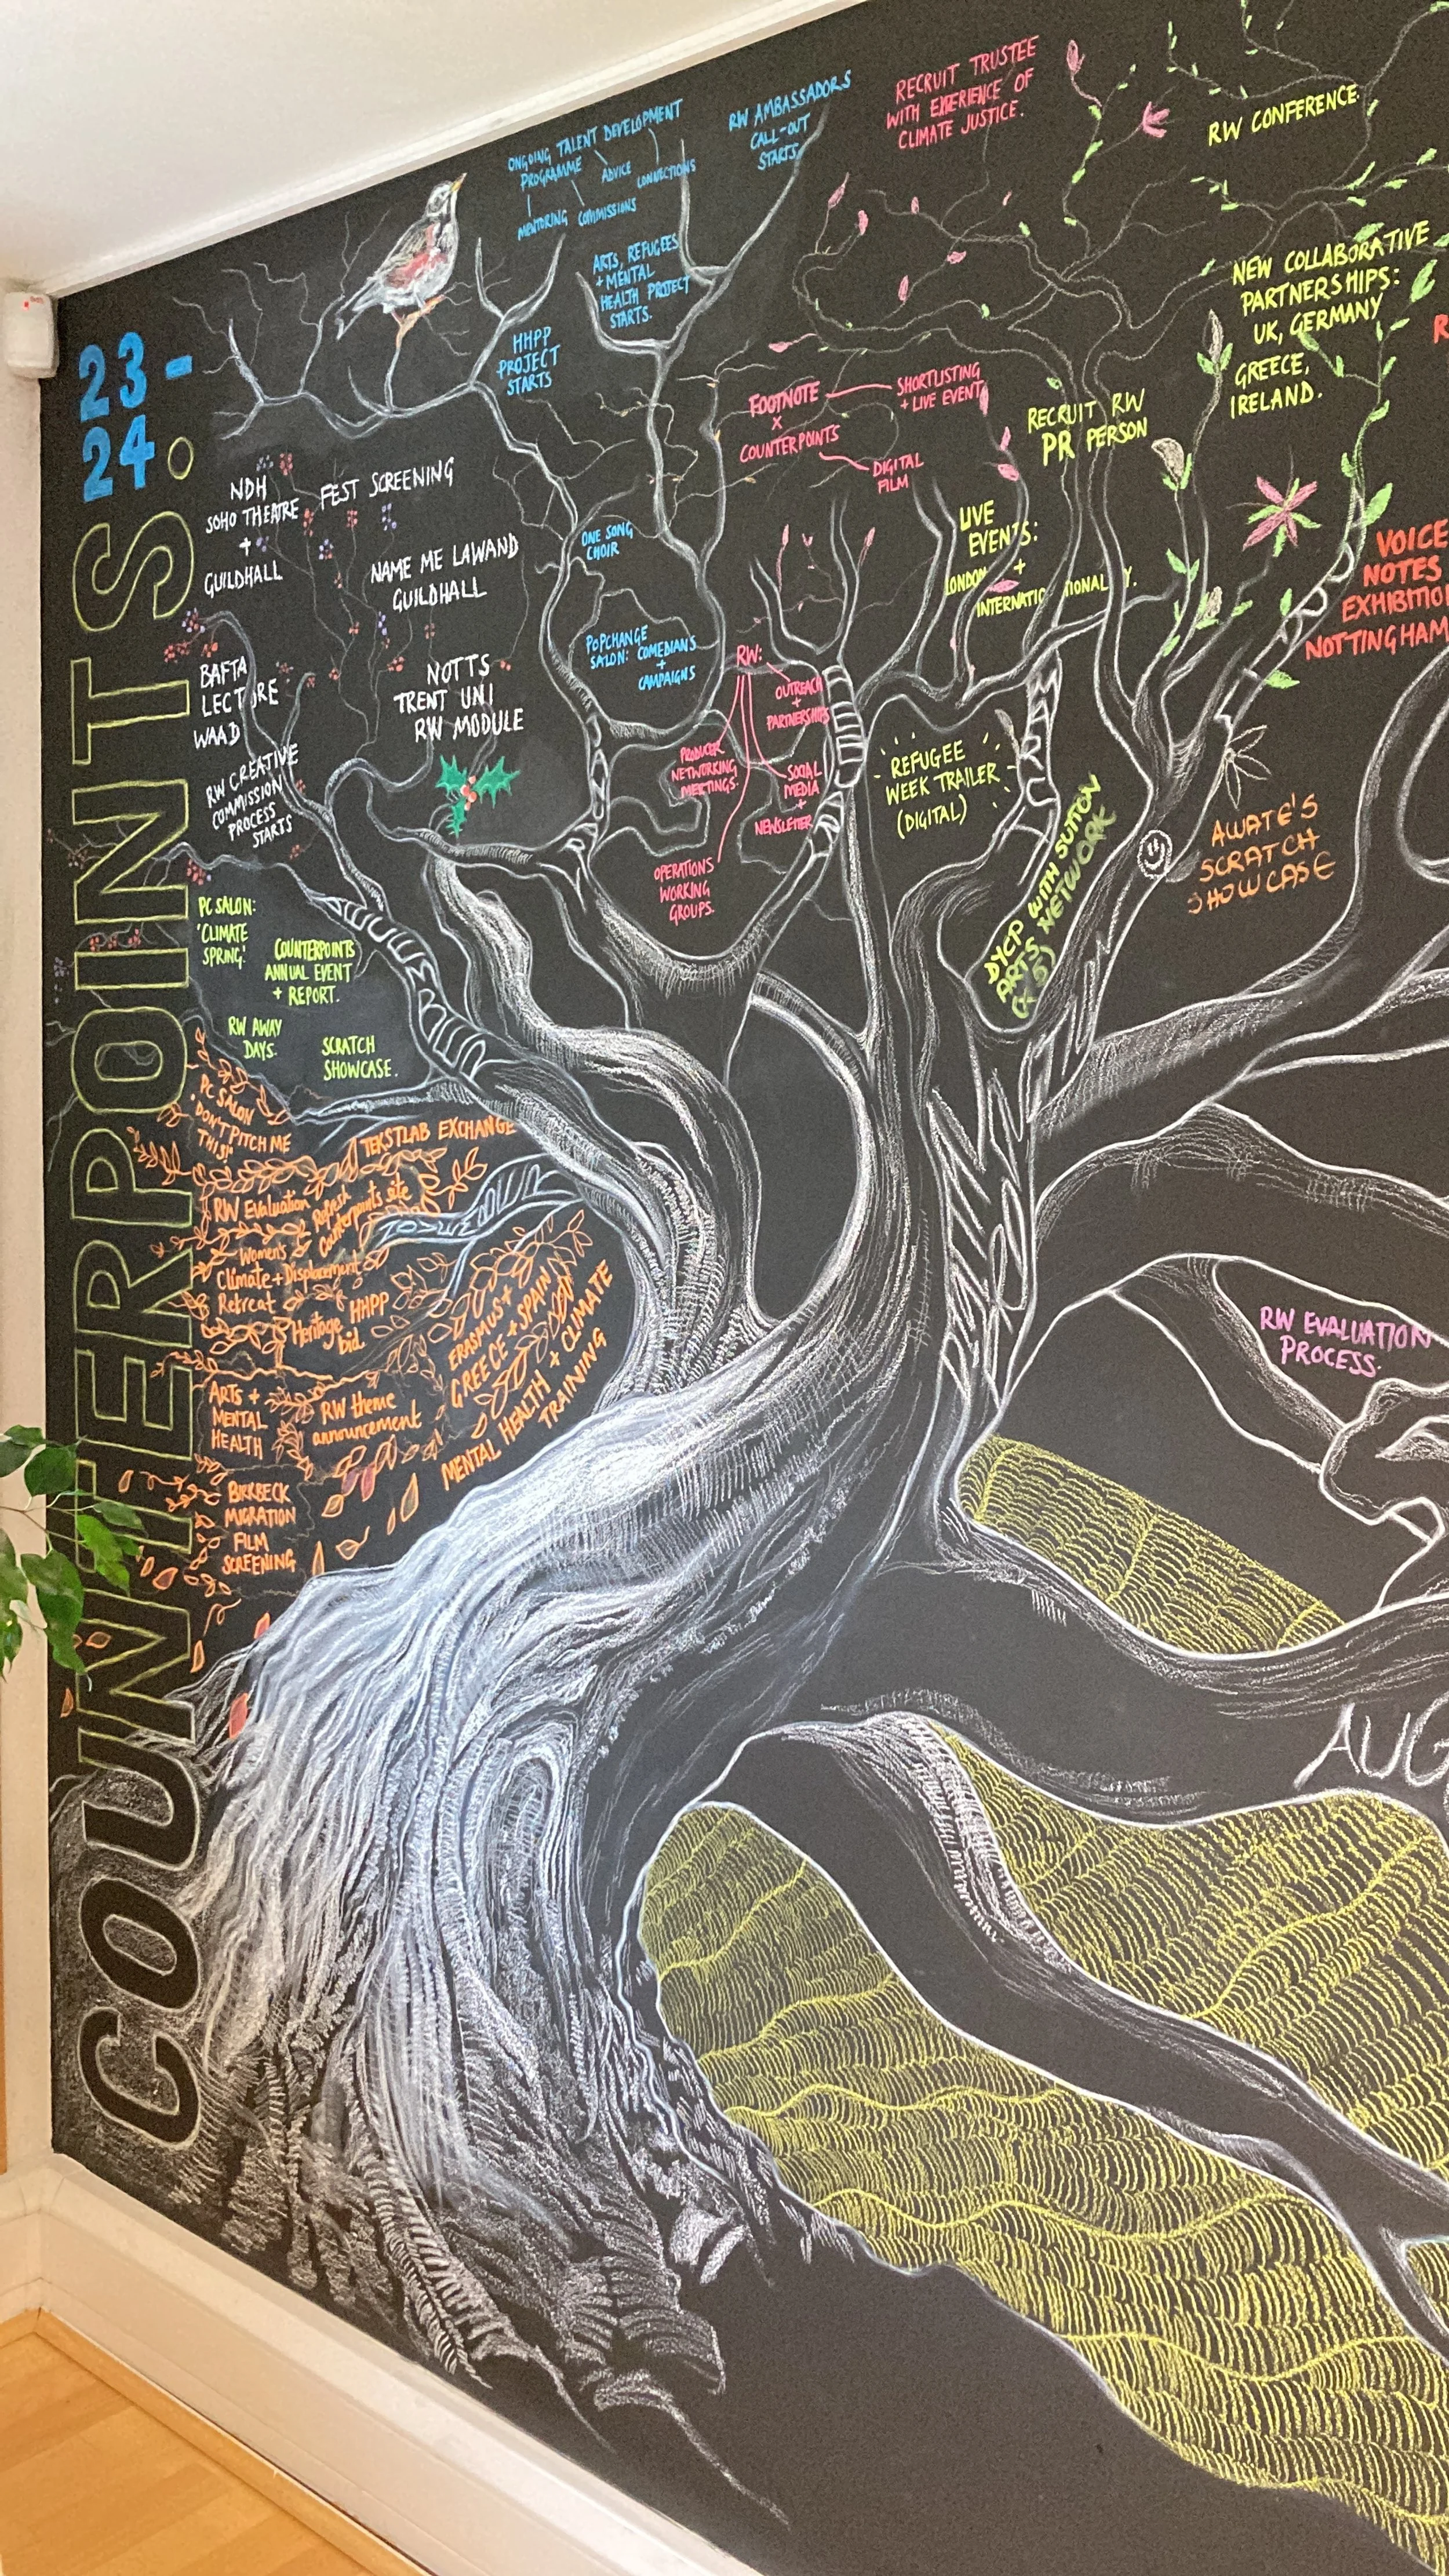 COUNTERPOINTS.
23-
24
ONGOING TALENT DEVELOPMENT
PROGRAMME
ADVICE
CONNECTIONS
MENTORING
COMMISSIONS
RW AMBASSADORS
CALL-OUT
STARTS
RECRUIT TRUSTEE
WITH EXPERIENCE OF
CLIMATE JUSTICE.
RW CONFERENCE.
ARTS, REFUGEES
+ MENTAL
HEALTH PROJECT
STARTS.
HHPP
PROJECT
STARTS
NEW COLLABORATIVE
PARTNERSHIPS:
UK, GERMANY
GREECE,
IRELAND.
FOOTNOTE
X
COUNTERPOINTS
SHORTLISTING
+ LIVE EVENT
DIGITAL
FILM
RECRUIT RW
PR PERSON
NDH
SOHO THEATRE
+
GUILDHALL
FEST SCREENING
NAME ME LAWAND
GUILDHALL
ONE SONG
CHOIR
LIVE
EVENTS:
LONDON +
INTERNATIONALLY.
VOICE
NOTES
EXHIBITION
NOTTINGHAM
POPCHANGE
SALON: COMEDIANS
+
CAMPAIGNS
BAFTA
LECTURE
WAAD
NOTTS
TRENT UNI
RW MODULE
RW:
OUTREACH
+
PARTNERSHIPS
PRODUCER
NETWORKING
MEETINGS.
SOCIAL
MEDIA
+
NEWSLETTER
OPERATIONS
WORKING
GROUPS.
REFUGEE
WEEK TRAILER
(DIGITAL)
RW CREATIVE
COMMISSION
PROCESS
STARTS
DYCP WITH SUTTON
ARTS NETWORK
AWATE'S
SCRATCH
SHOWCASE
PC SALON:
'CLIMATE
SPRING'.
COUNTERPOINTS
ANNUAL EVENT
+ REPORT.
RW AWAY
DAYS.
SCRATCH
SHOWCASE.
JUNE
MAY
PC SALON
'DON'T PITCH ME
THIS!'
TEKSTLAB EXCHANGE
RW Evaluation
Refresh
Counterpoints site
Women's
Climate + Displacement
Retreat
HHPP
Heritage
bid.
ERASMUS+
GREECE + SPAIN
MENTAL HEALTH + CLIMATE
TRAINING
ARTS +
MENTAL
HEALTH
RW theme
announcement
BIRKBECK
MIGRATION
FILM
SCREENING
RW EVALUATION
PROCESS.
AUG